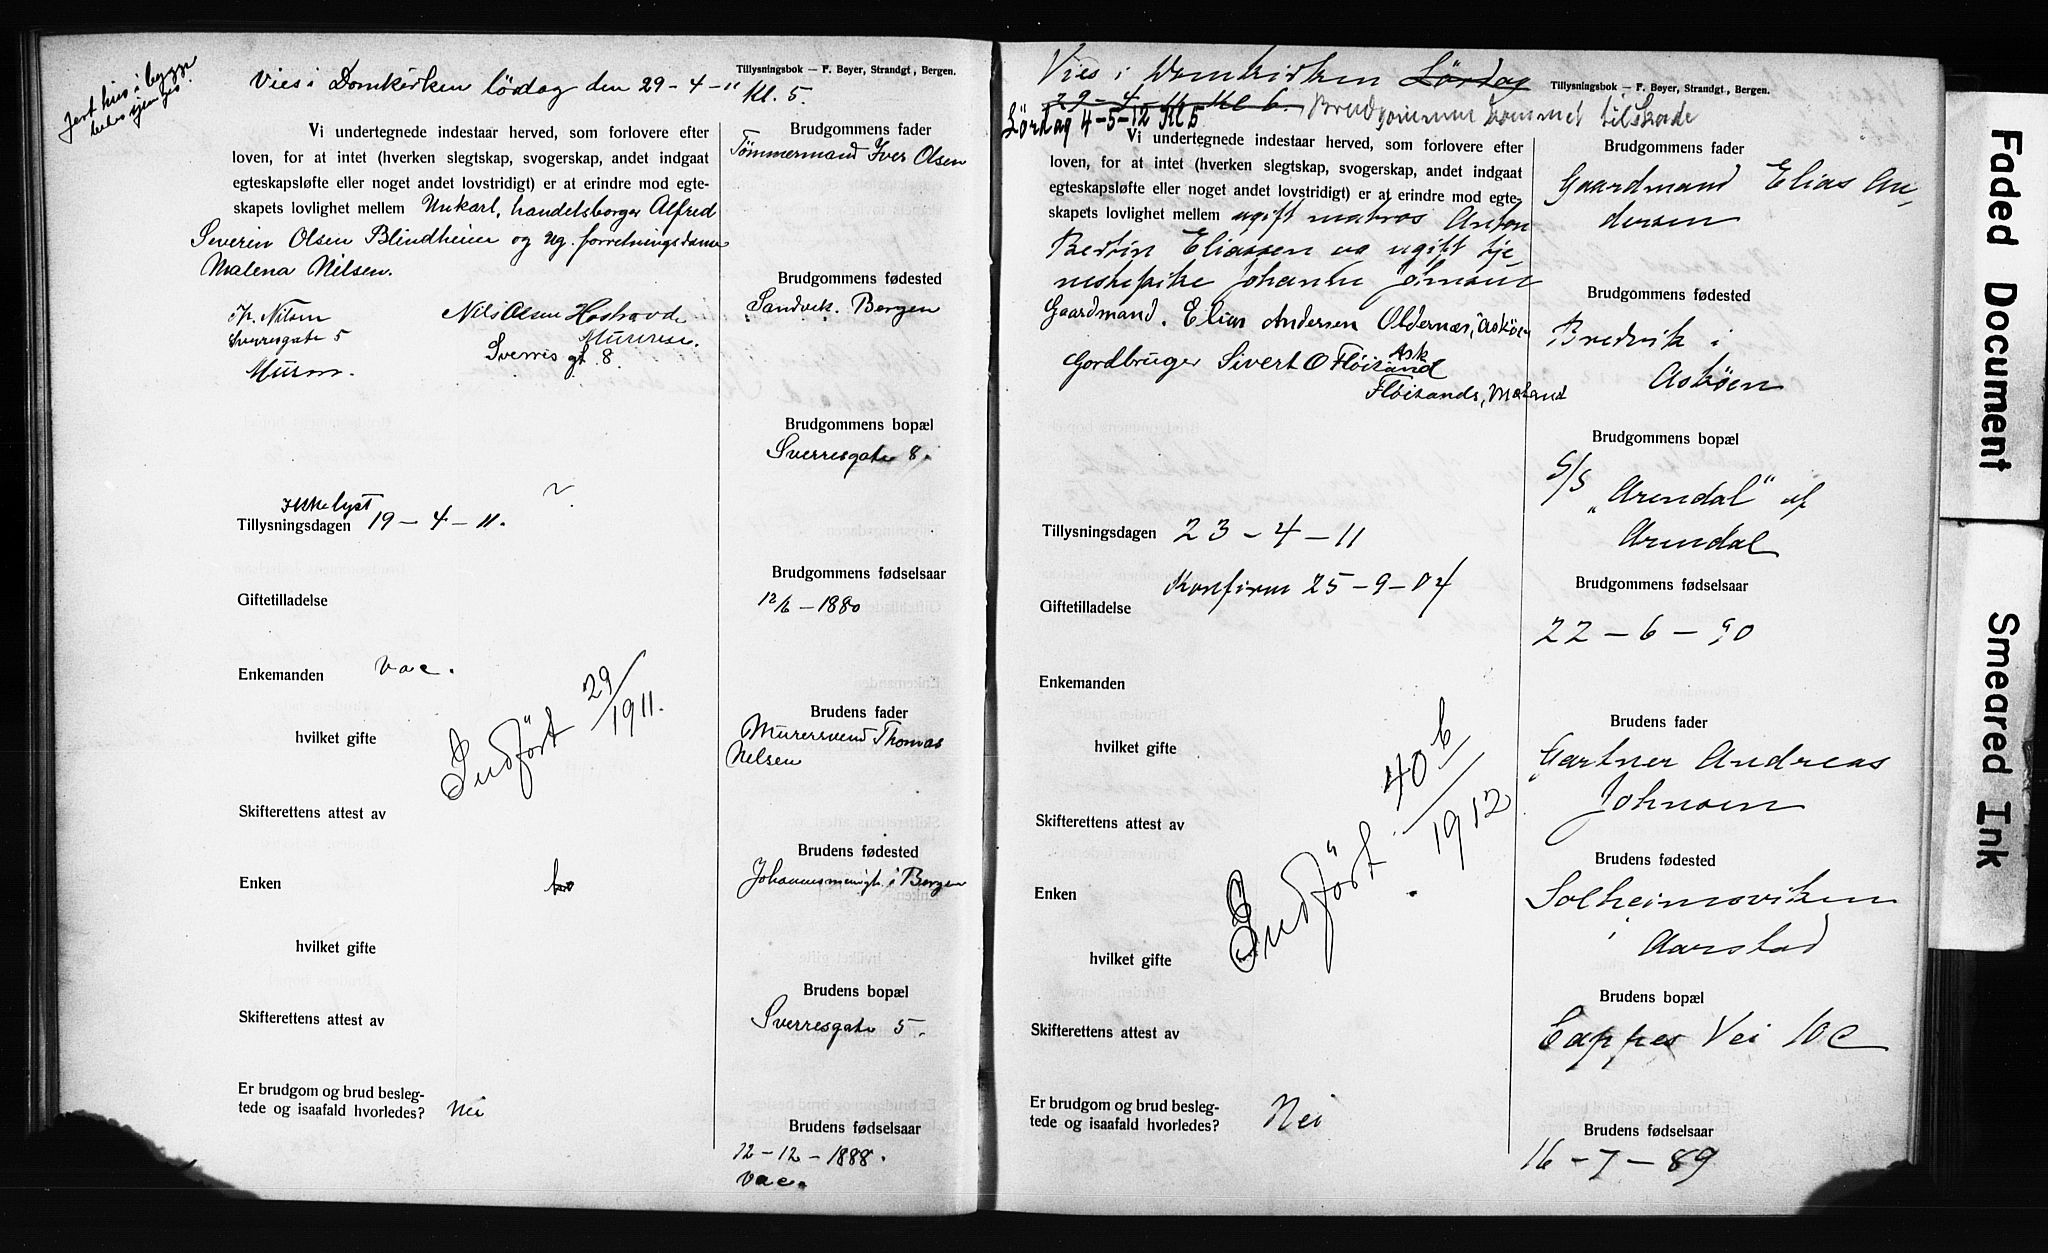 Vies i Domkirken lördag den 29-4-11
Kl. 5.
Tillysningsbok — F. Bøyer, Strandgt., Bergen.
Vi undertegnede indestaar herved, som forlovere efter
loven, for at intet (hverken slegtskap, svogerskap, andet indgaat
egteskapsløfte eller noget andet lovstridigt) er at erindre mod egte-
skapets lovlighet mellem Unkarl, handelsborger Alfred
Severin Olsen Blindheim og ug. forretningsdame
Malena Nilsen.
Sverresgate 5
Murm.
Nils Olsen
Murersv.
Sverris gt. 8
Ikke lyst
Tillysningsdagen 19-4-11.
Giftetilladelse
Enkemanden
vac.
hvilket gifte
Indført 29/1911.
Skifterettens attest av
Enken
hvilket gifte
Skifterettens attest av
Er brudgom og brud besleg-
tede og isaafald hvorledes? Nei
Brudgommens fader
Tømmermand Iver Olsen
Brudgommens fødested
Sandvik. Bergen
Brudgommens bopæl
Sverresgate 8.
Brudgommens fødselsaar
12/6-1880
Brudens fader
Murersvend Thomas
Nilsen
Brudens fødested
i Bergen
Brudens bopæl
Sverresgate 5.
Brudens fødselsaar
12-12-1888.
vac.
Vies i Domkirken Lördag
29-4-11 Kl 6. Brudgommen kommet tilskade
Lördag 4-5-12 Kl 5
Tillysningsbok — F. Bøyer, Strandgt., Bergen.
Vi undertegnede indestaar herved, som forlovere efter
loven, for at intet (hverken slegtskap, svogerskap, andet indgaat
egteskapsløfte eller noget andet lovstridigt) er at erindre mod egte-
skapets lovlighet mellem ugift matros Anton
Bertin Eliassen og ugift tje
nestepike Johanne Johnsen
Gaardmand. Elias Andersen Oldernæs, Askøen
Ask
Gordbruger Sivert O Fløisand
Fløisands, Mæland
Tillysningsdagen 23-4-11
Konfirm 25-9-04
Giftetilladelse
Enkemanden
hvilket gifte
Indført 40b/1912
Skifterettens attest av
Enken
hvilket gifte
Skifterettens attest av
Er brudgom og brud besleg-
tede og isaafald hvorledes? Nei
Brudgommens fader
Gaardmand Elias An-
dersen
Brudgommens fødested
Bredvik i
Askøen
Brudgommens bopæl
S/S „Arendal" af
Arendal
Brudgommens fødselsaar
22-6-90
Brudens fader
Gartner Andreas
Johnsen
Brudens fødested
Solheimsviken
i Aarstad
Brudens bopæl
Cappes Vei 10c
Brudens fødselsaar
16-7-89
Faded Document
Smeared Ink